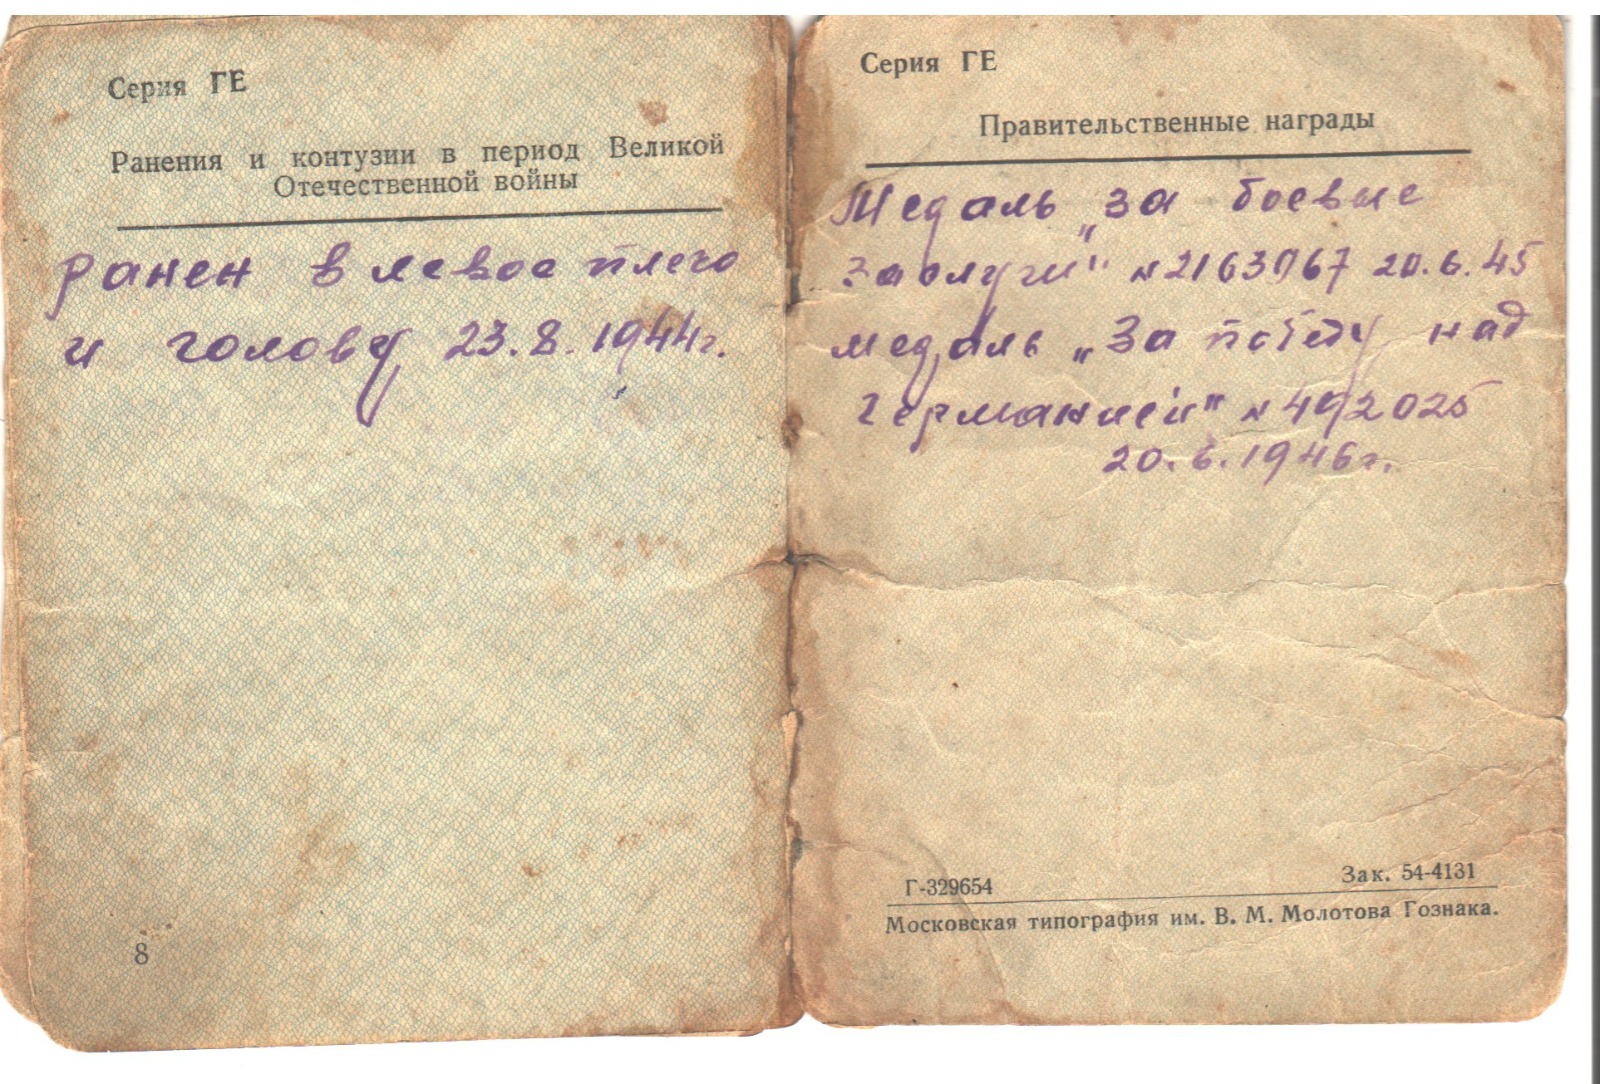 Серия ГЕ
Ранения и контузии в период Великой
Отечественной войны
ранен в левое плечо
и голову 23.8.1944г.
8
Серия ГЕ
Правительственные награды
Медаль „за боевые
заслуги" N2163067 20.6.45
медаль „За победу над
германией" N492025
20.6.1946г.
Г-329654 Зак. 54-4131
Московская типография им. В. М. Молотова Гознака.